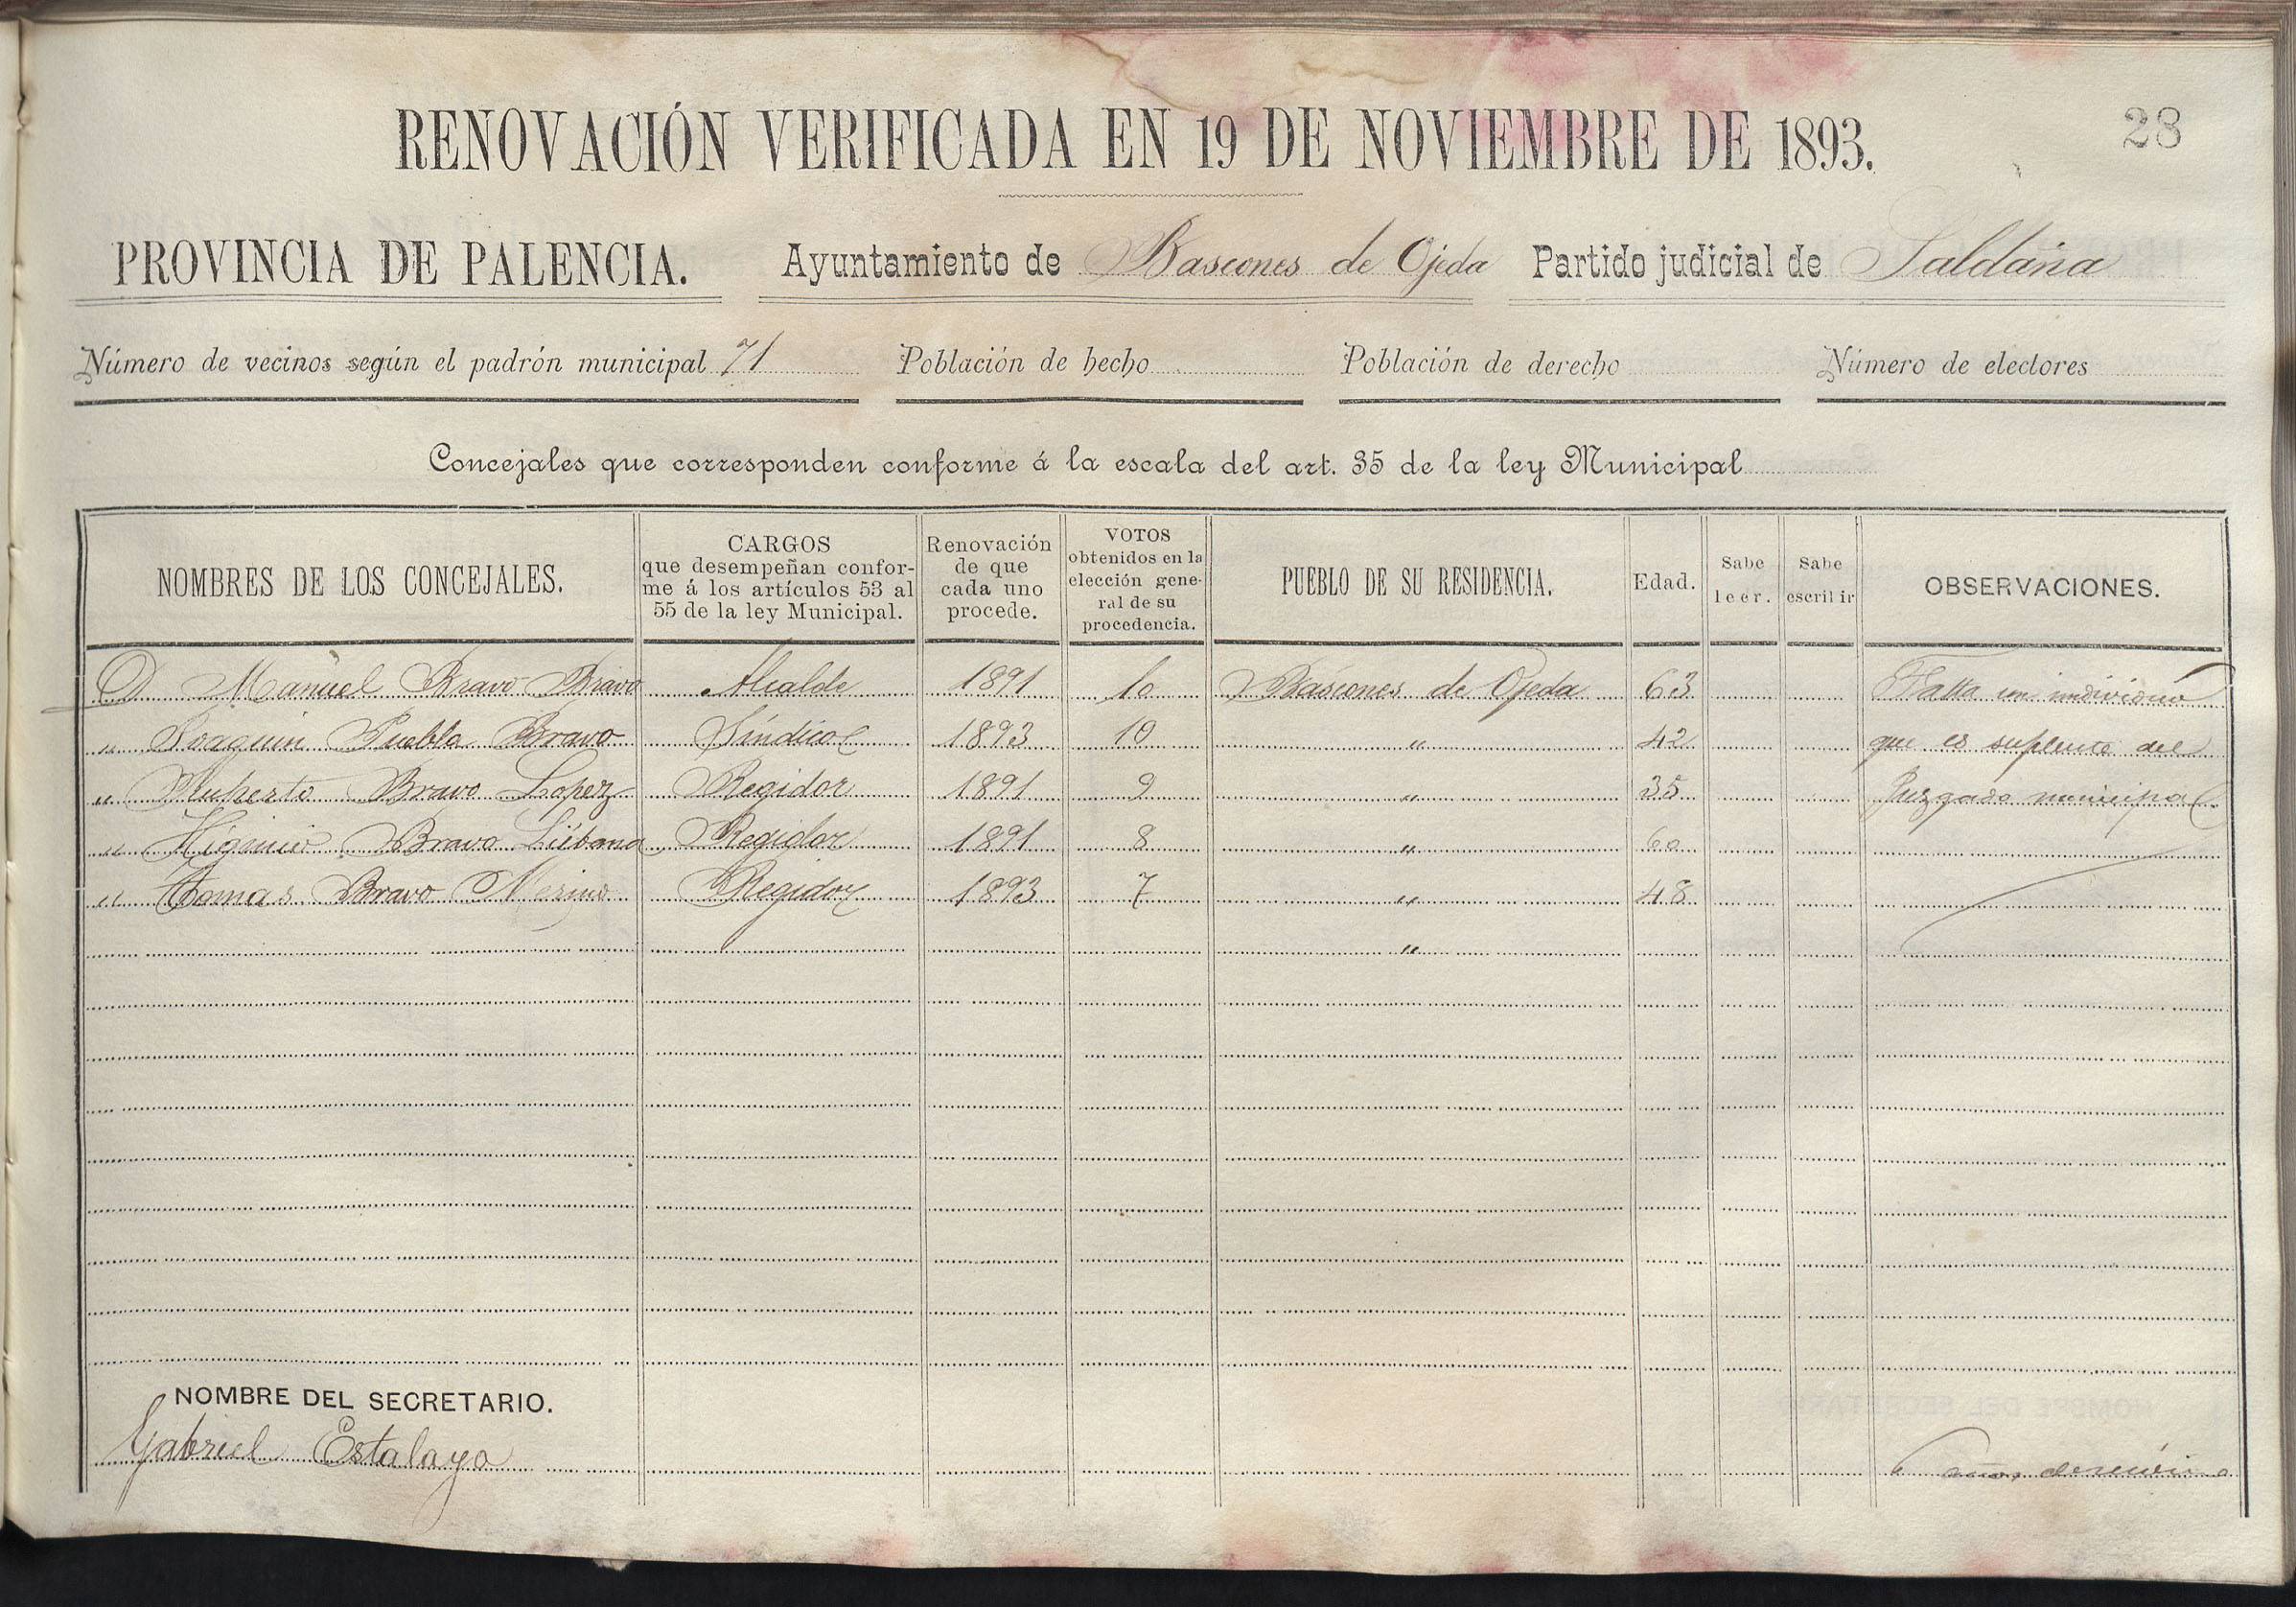 28
RENOVACIÓN VERIFICADA EN 19 DE NOVIEMBRE DE 1893.
PROVINCIA DE PALENCIA. Ayuntamiento de Bascones de Ojeda Partido judicial de Saldaña
Número de vecinos según el padrón municipal 71 Población de hecho Población de derecho Número de electores
Concejales que corresponden conforme á la escala del art. 35 de la ley Municipal
NOMBRES DE LOS CONCEJALES.
CARGOS
que desempeñan confor-
me á los artículos 53 al
55 de la ley Municipal.
Renovación
de que
cada uno
procede.
VOTOS
obtenidos en la
elección gene-
ral de su
procedencia.
PUEBLO DE SU RESIDENCIA.
Edad.
Sabe
leer.
Sabe
escribir
OBSERVACIONES.
D. Manuel Bravo Bravo Alcalde 1891 10 Bascones de Ojeda 63 Falta un individuo
" Joaquin Puebla Bravo Síndico 1893 10 " 42 que es suplente del
" Ruperto Bravo Lopez Regidor 1891 9 " 35 Juzgado municipal
" Higinio Bravo Liébana Regidor 1891 8 " 60
" Tomas Bravo Merino Regidor 1893 7 " 48
"
NOMBRE DEL SECRETARIO.
Gabriel Estalayo
6 años